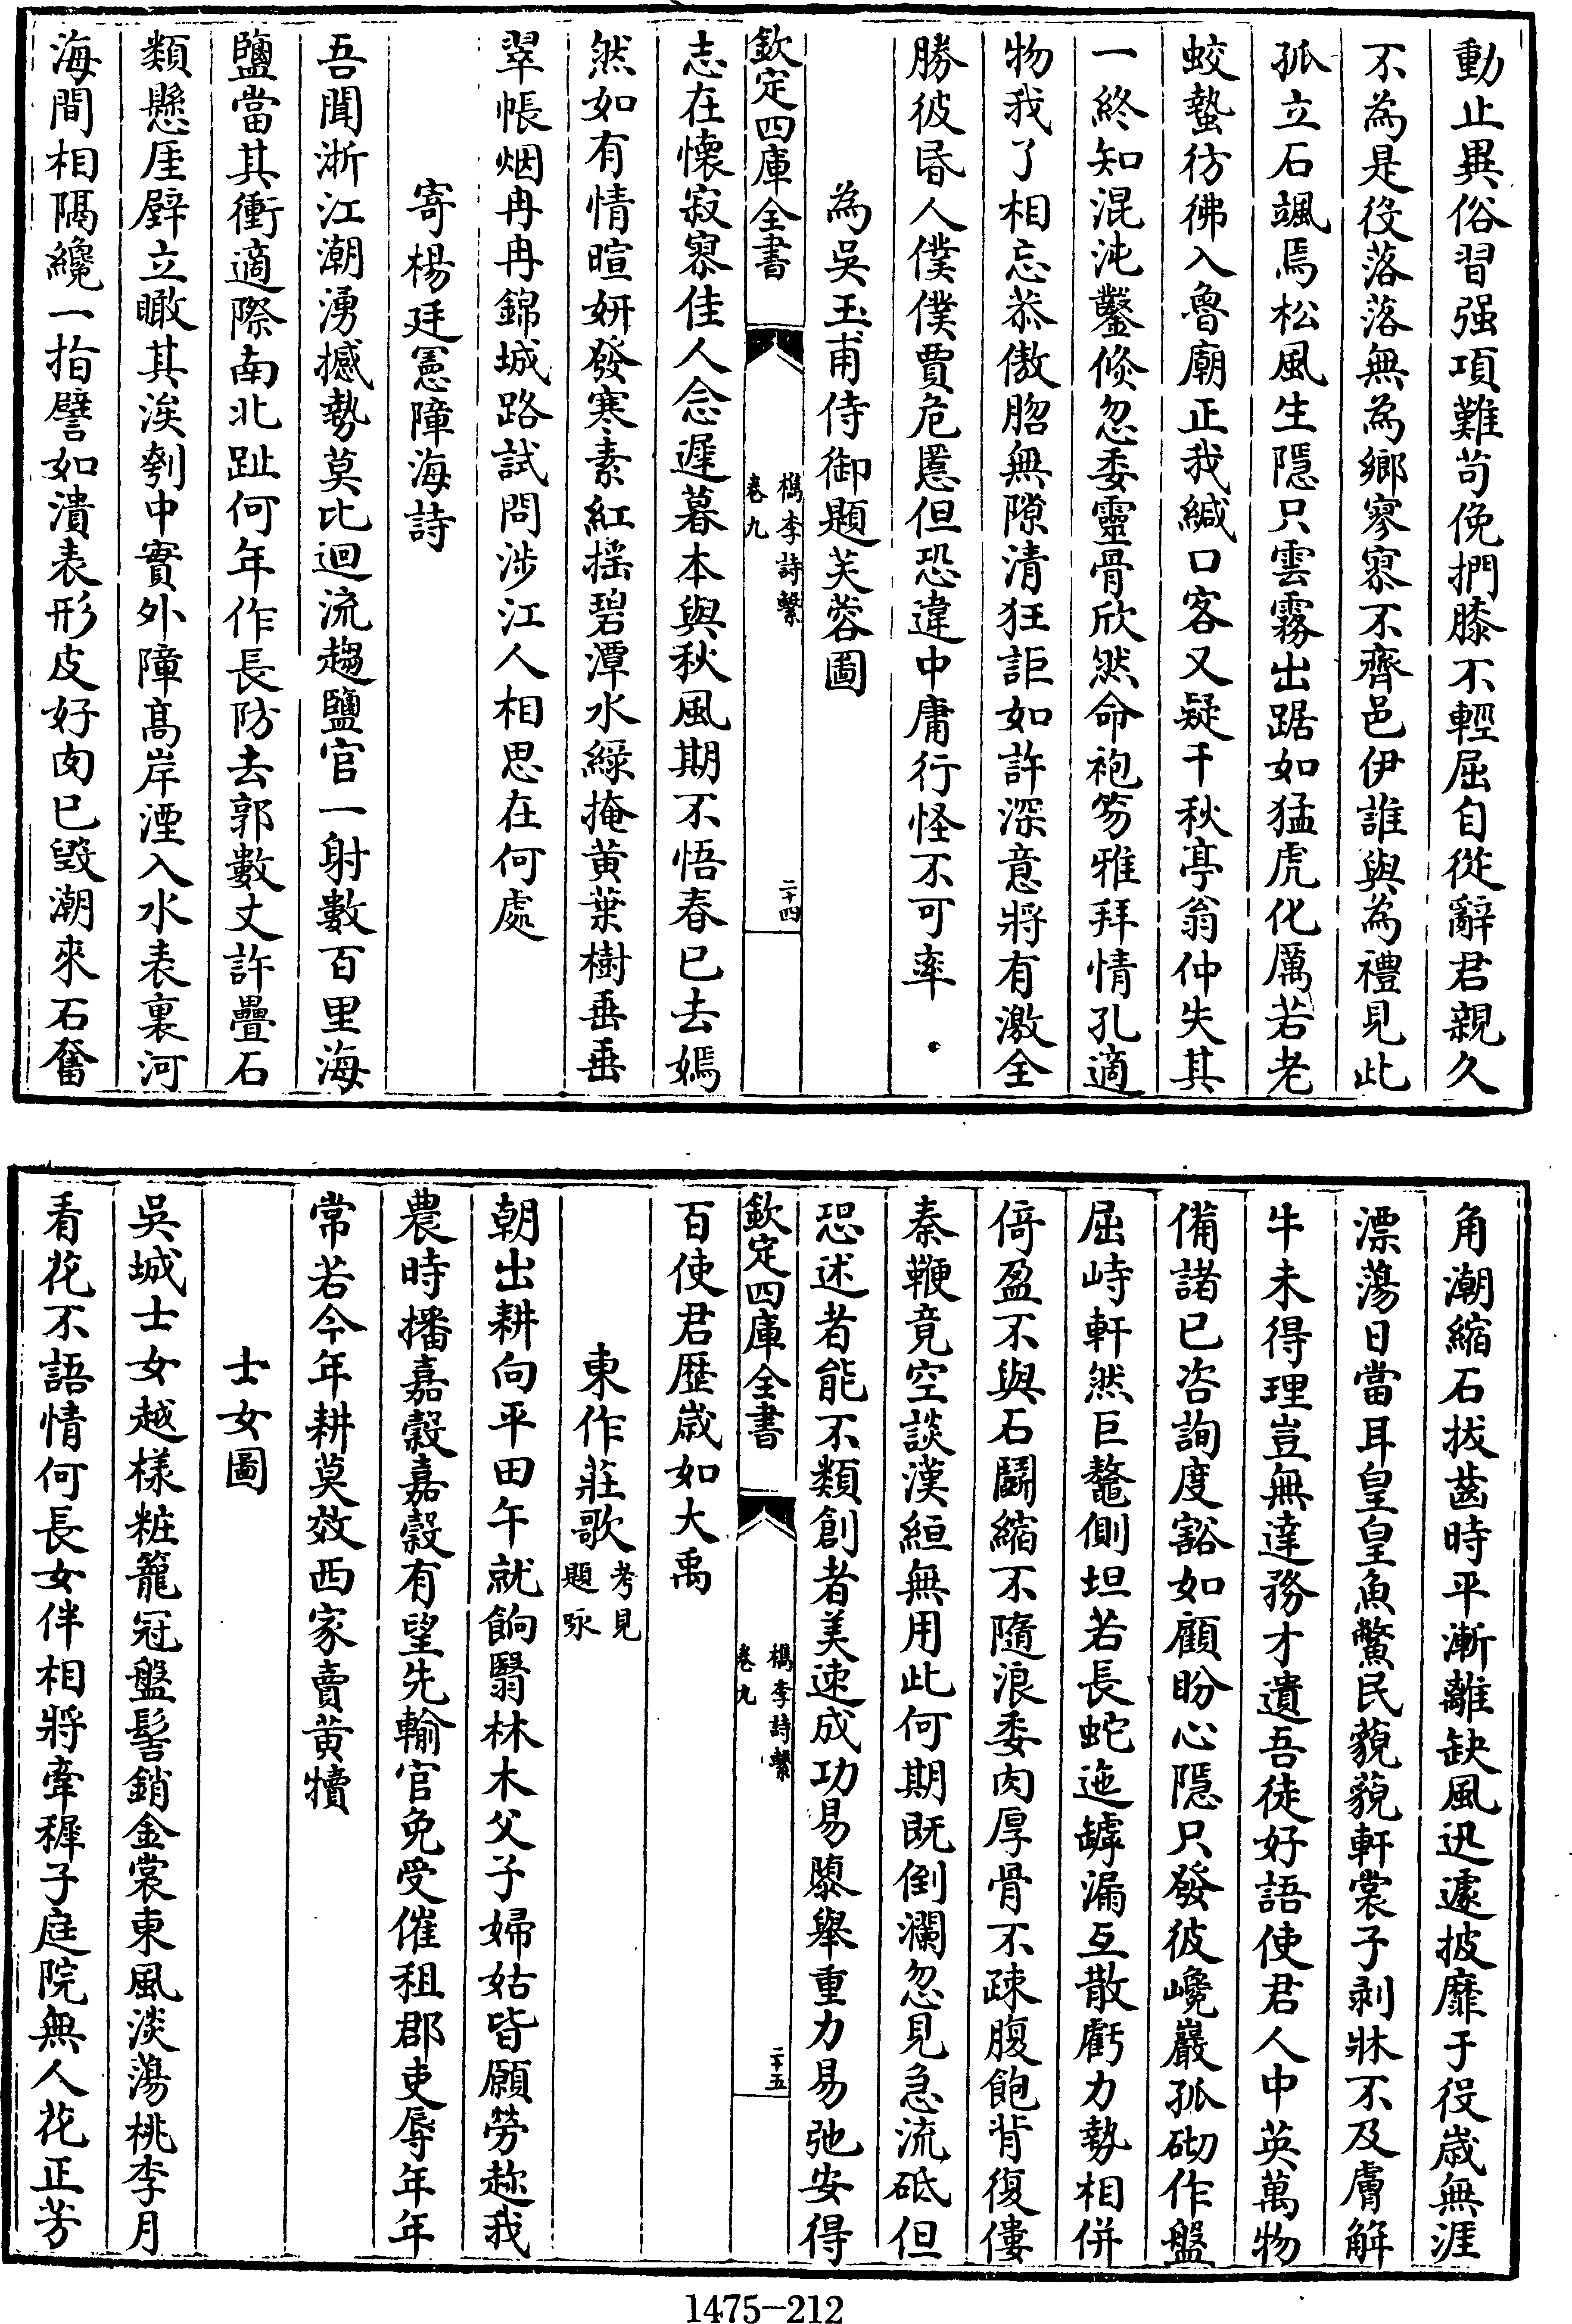 動止異俗習强項難苟俛捫膝不輕屈自從辭君親久
不為是役落落無為鄉寥寥不齊邑伊誰與為禮見此
孤立石颯焉松風生隱只雲霧出踞如猛虎化厲若老
蛟蟄彷彿入魯廟正我緘口客又疑千秋亭翁仲失其
一終知混沌鑿倐忽委靈骨欣然命袍笏雅拜情孔適
物我了相忘恭傲胳無隙清狂詎如許深意將有激全
勝彼昏人僕僕賈危慝但恐違中庸行怪不可率
為吳玉甫侍御題芙蓉圖
欽定四庫全書
檇李詩繫
卷九
二十四
志在懷寂寥佳人念遲暮本與秋風期不悟春已去嫣
然如有情暄妍發寒素紅摇碧潭水緑掩黄葉樹垂垂
翠帳烟冉冉錦城路試問涉江人相思在何處
寄楊廷憲障海詩
吾聞浙江潮湧撼勢莫比迴流趨鹽官一射數百里海
鹽當其衝適際南北趾何年作長防去郭數丈許疊石
類懸厓辟立瞰其涘刳中實外障髙岸湮入水表裏河
海間相隔纔一指譬如潰表形皮好肉已毁潮來石奮
角潮縮石拔齒時平漸離缺風迅遽披靡于役歲無涯
漂蕩日當耳皇皇魚鱉民藐藐軒裳子剥牀不及膚解
牛未得理豈無達務才遺吾徒好語使君人中英萬物
備諸已咨詢度豁如顧盼心隱只發彼巉巖孤砌作盤
屈峙軒然巨鼇側坦若長蛇迤罅漏互散虧力勢相併
倚盈不與石鬬縮不隨浪委肉厚骨不疎腹飽背復僂
秦鞭竟空談漢絙無用此何期既倒瀾忽見急流砥但
恐述者能不類創者美速成功易隳舉重力易弛安得
欽定四庫全書
檇李詩繫
卷九
二十五
百使君歴歲如大禹
東作莊歌考見
題咏
朝出耕向平田午就餉翳林木父子婦姑皆願勞趂我
農時播嘉穀嘉穀有望先輸官免受催租郡吏辱年年
常若今年耕莫效西家賣黄犢
士女圖
吳城士女越樣粧籠冠盤髻銷金裳東風淡蕩桃李月
看花不語情何長女伴相將牽穉子庭院無人花正芳
1475-212